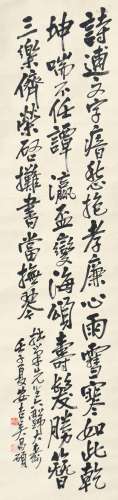 詩逋又字瘖愁抱孝廉心雨雪寒如此乾
坤喘不任譚瀛盃變海頌壽髮勝簪
三樂儕榮啓攤書當撫琴
先生
壬子夏安吉吳昌碩